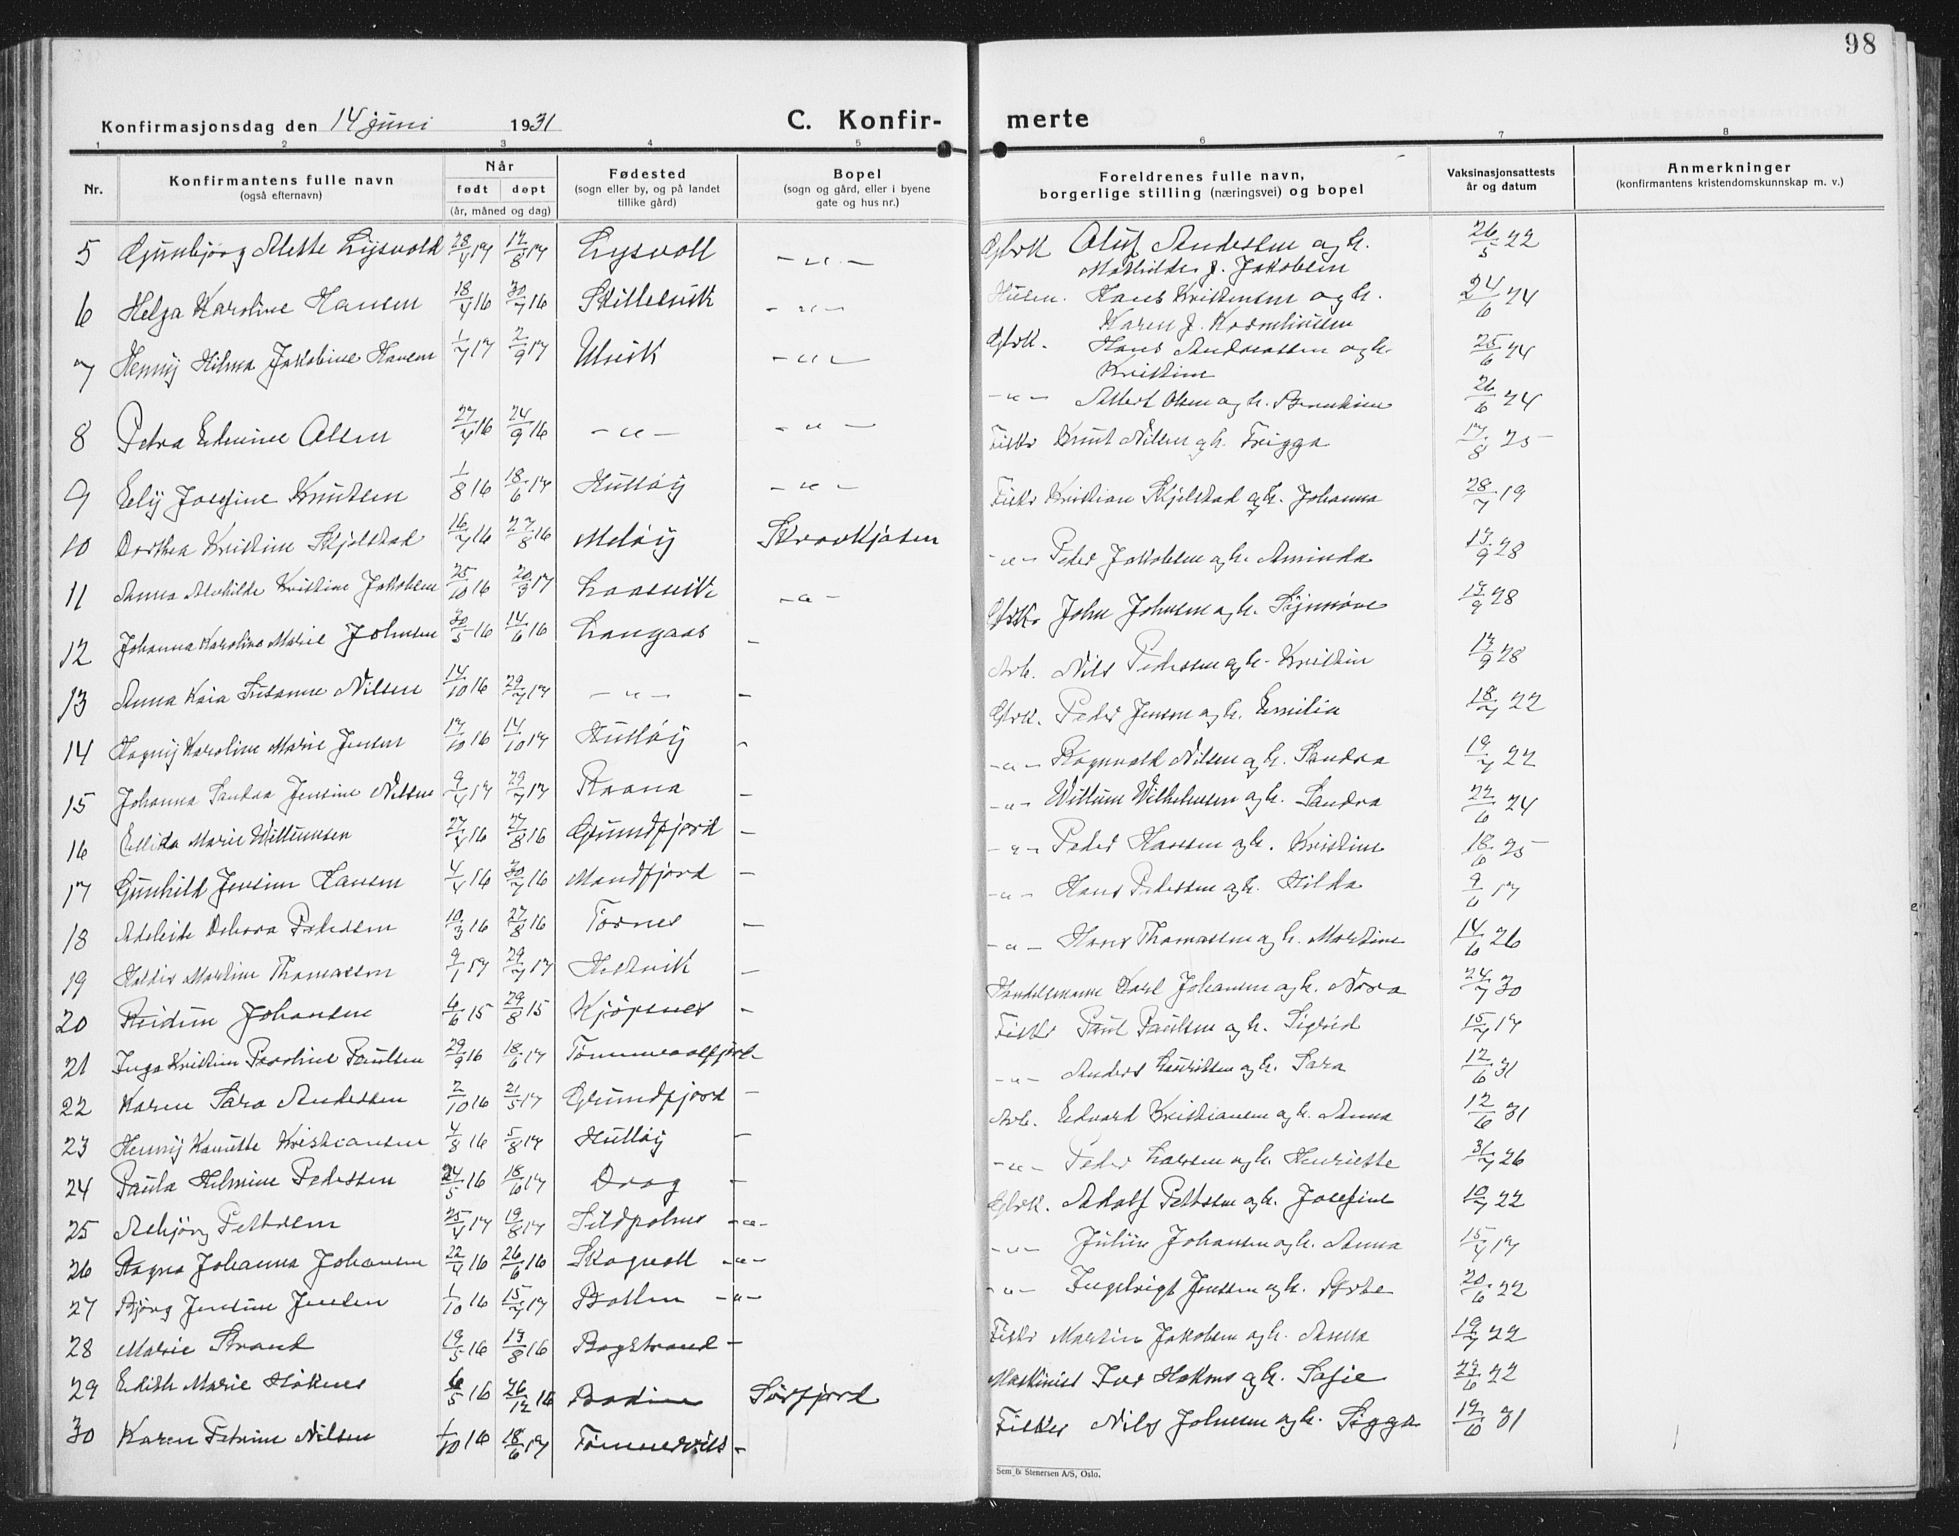 98
Konfirmasjonsdag den 14 juni 1931
C. Konfir-
merte
1 2 3 4 5 6 7 8
Nr.
Konfirmantens fulle navn
(også efternavn)
Når
født døpt
(år, måned og dag)
Fødested
(sogn eller by, og på landet
tillike gård)
Bopel
(sogn og gård, eller i byene
gate og hus nr.)
Foreldrenes fulle navn,
borgerlige stilling (næringsvei) og bopel
Vaksinasjonsattests
år og datum
Anmerkninger
(konfirmantens kristendomskunnskap m. v.)
5 Gunbjørg Alette Lysvold 28/4 17 12/8 17 Lysvoll -"- Gbrk Oluf Andersen og h. Mathilde J. Jakobsen 26/5 22
6 Helga Karoline Hansen 18/4 16 30/7 16 -"- Hans Kristensen og h. Karen J. 24/6 24
7 Henny Hilma Jakobine Hansen 1/7 17 2/9 17 Ulvik -"- Gbrk. Hans Andreassen og h. Kristine 25/6 24
8 Petra Edvine Olsen 24/9 16 -"- -"- -"- Albert Olsen og h. 26/6 24
9 Elly Josefine Knutsen 1/8 16 18/6 17 Hulløy -"- Fisker Knut Nilsen og h. Frigga 17/8 25
10 Dorthea Kristine Skjelstad 16/7 16 27/8 16 Meløy Skrovkjosen Fisker Kristian Skjelstad og h. Johanna 28/7 19
11 Anna Mathilde Kristine Jakobsen 25/10 16 20/3 17 -"- -"- Peder Jakobsen og h. Aminda 17/9 28
12 Johanna Karoline Marie Johnsen 30/5 16 14/6 16 Langaas - John Johnsen og h. Synnøve 17/9 28
13 Anna Kaia Susanne Nilsen 14/10 16 29/7 17 -"- - Arb. Nils Pedersen og h. Kristin 17/9 28
14 Hagny Karoline Marie Jensen 17/10 16 14/10 17 Hulløy - Gbrk. Peder Jensen og h. Emilia 18/7 22
15 Johanna Sandra Jensine Nilsen 9/4 17 29/7 17 Raana - -"- Ragnvald Nilsen og h. Sandra 19/7 22
16 Ellida Marie Willumsen 27/4 16 27/8 16 Grundfjord - -"- Willum Wilhelmsen og h. Sandra 22/6 24
17 Gunhild Jensine Hansen 4/4 16 30/7 16 Mandfjord - -"- Peder Hansen og h. Kristine 18/6 25
18 Adeleide Debora Pedersen 10/3 16 27/8 16 Tornes - -"- Hans Pedersen og h. Hilda 9/6 17
19 Martine Thomassen 9/1 17 29/7 17 - -"- Hans Thomassen og h. Martine 14/6 26
20 Reidun Johansen 6/6 15 29/8 15 Kjøpsnes - Handelsmann Karl Johansen og h. Nora 24/7 30
21 Inga Kristine Pauline Paulsen 29/9 16 18/6 17 Fisker Paul Paulsen og h. Sigrid 15/7 17
22 Karen Sara Andersen 2/10 16 21/5 17 Grundfjord - -"- Anders Lauritsen og h. Sara 12/6 31
23 Henny Kristiansen 4/8 16 5/8 17 Hulløy - Arb. Edvard Kristiansen og h. Anna 12/6 31
24 Paula Helmine Pedersen 24/5 16 18/6 17 Drag - -"- Peder Larsen og h. Henriette 31/7 26
25 Asbjørg Pettersen 25/4 17 19/8 17 Sildpolnes -"- Gbrk. Adolf Pettersen og h. Josefine 10/7 22
26 Ragna Johanna Johansen 22/4 16 26/6 16 Skogvoll -"- -"- Julius Johansen og h. Anna 17
27 Bjørg Jensine Jensen 1/10 16 15/7 17 Botten -"- -"- Ingebrigt Jensen og h. 20/6 22
28 Marie Strand 19/5 16 13/8 16 Bogstrand - Fisker Martin Jakobsen og h. Anna 19/7 22
29 Edith Marie Haknes 6/5 16 26/12 16 Bodin Sørfjord Maskinist Iver Haknes og h. Sofie 22
30 Karen Petrine Nilsen 1/10 16 18/6 17 Tømmervik - Fisker Nils Johnsen og h. Sigga 12/6 31
Sem & Stenersen A/S, Oslo.